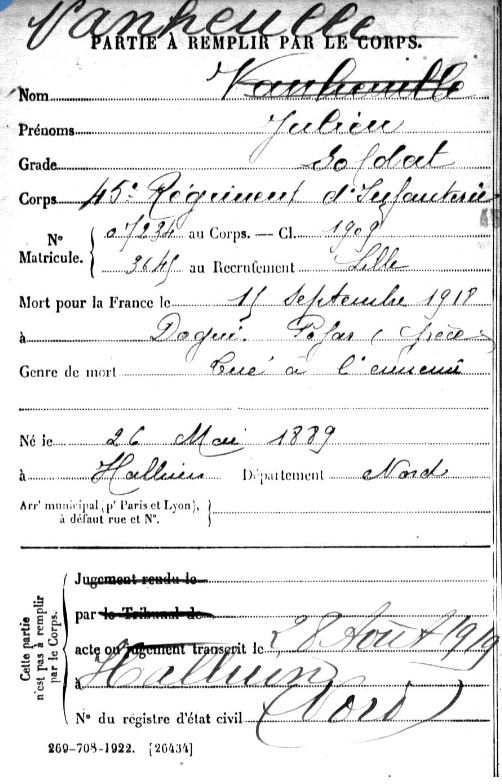 Vanheulle
PARTIE À REMPLIR PAR LE CORPS.
Nom Vanheuille
Prénoms Julien
Grade Soldat
Corps 45e Régiment d'Infanterie
N° Matricule. { 07234 au Corps. — Cl. 1909
3645 au Recrutement Lille
Mort pour la France le 15 Septembre 1918
à (Grèce)
Genre de mort Tué à l'ennemi
Né le 26 Mai 1889
à Halluin Département Nord
Arrt municipal (pr Paris et Lyon), à défaut rue et N°.
Cette partie n'est pas à remplir par le Corps.
Jugement rendu le
par le Tribunal de
acte ou jugement transcrit le 28 Août 1919
à Halluin
N° du registre d'état civil (Nord)
269-708-1922. [26434]